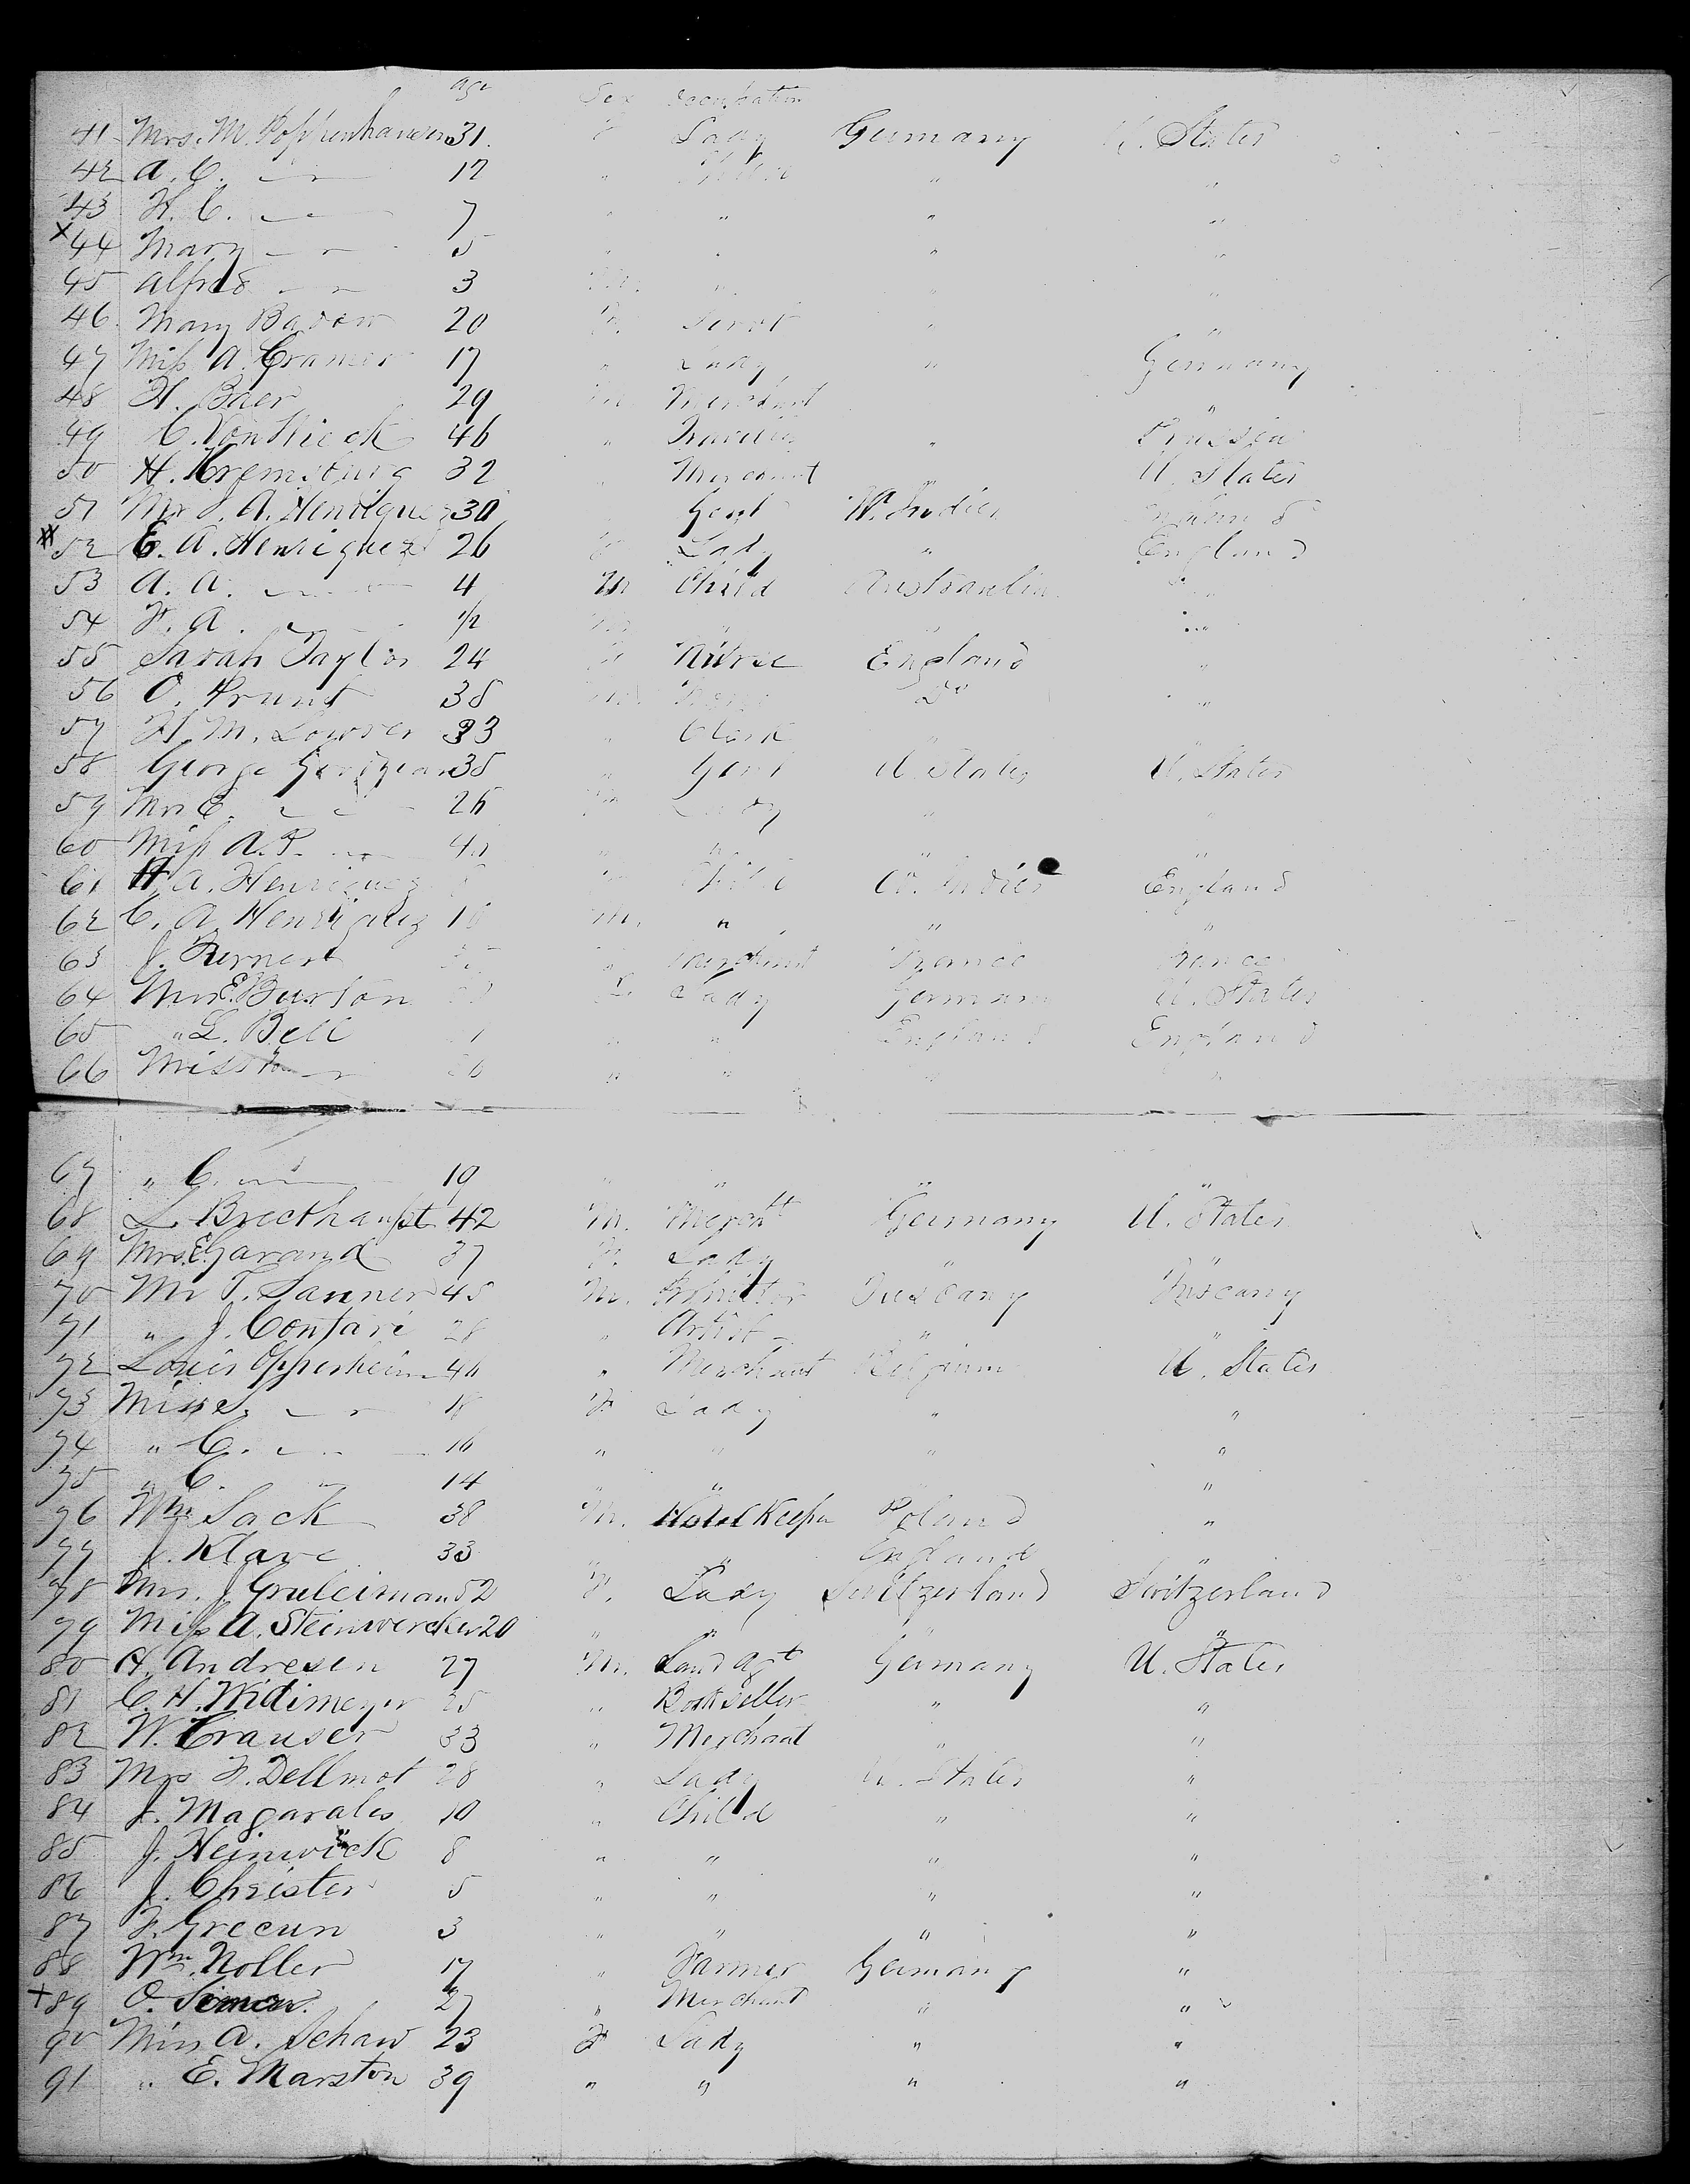 age Sex Occupation
41 Mrs. M. Poppenhausen 31. F Lady Germany U. States
42 A. C. — 17 " " "
43 H. C. — 7 " " " "
x 44 Mary — 5 " " " "
45 Alfred — 3 M. " " "
46. Mary Badow 20 F. Servt " "
47 Miss A. Cramer 17 " Lady " Germany
48 H. Baer 29 M Merchant "
49 C. Von 46 " " Prussia
50 H. 32 " Merchant U. States
51 Mr J. A. Henriquez 30 Gent W. Indies
52 E. A. Henriquez 26 F Lady " England
53 A. A. — 4 M Child "
54 F. A. — 1/2 " " "
55 Sarah Taylor 24 F Nurse England "
56 O. Prunt 38 M Do "
57 H. M. 33 " Clerk "
58 George 38 " Gent U. States U. States
59 Mrs E. — 26 Lady "
60 Miss A. P. — " " " "
61 H. A. Henriquez Child W. Indies England
62 C. A. Henriquez 10 M. " " "
63 J. " Merchant France France
64 Mrs E. Burton F. Lady Germany U. States
65 " L. Bell " " England England
66 Miss — " " " "
67 " C. — 19 " " " "
68 L. Brecthaupt 42 M. Mercht Germany U. States
69 Mrs. E. Garand 37 F. Lady " "
70 Mr T. Sanner 45 M. Tuscany Tuscany
71 " J. Confari 28 " Artist " "
72 Louis Oppenheim 40 " Merchant Belgium U. States
73 Miss S. — 18 F Lady " "
74 " C. — 16 " " " "
75 " C. — 14 " " "
76 Wm Sack 38 M. Hotel Keeper Poland "
77 J. Klare 33 " " England "
78 Mrs. J. Gruleiman 52 F. Lady Switzerland Switzerland
79 Miss A. Steinwercker 20 " " " "
80 A. Andresen 27 M. Land Agt Germany U. States
81 C. H. Widimeyer 25 " Bookseller " "
82 W. Crauser 33 " Merchant " "
83 Mrs F. Dellmot 28 " Lady U. States "
84 J. Magarales 10 " Child " "
85 J. Heinwick 8 " " " "
86 J. Christer 5 " " " "
87 F. Grecun 3 " " " "
88 Wm. Noller 17 " Farmer Germany "
+ 89 O. Simon. 27 " Merchant " "
90 Miss A. Schaw 23 F Lady " "
91 " E. Marston 39 " " " "